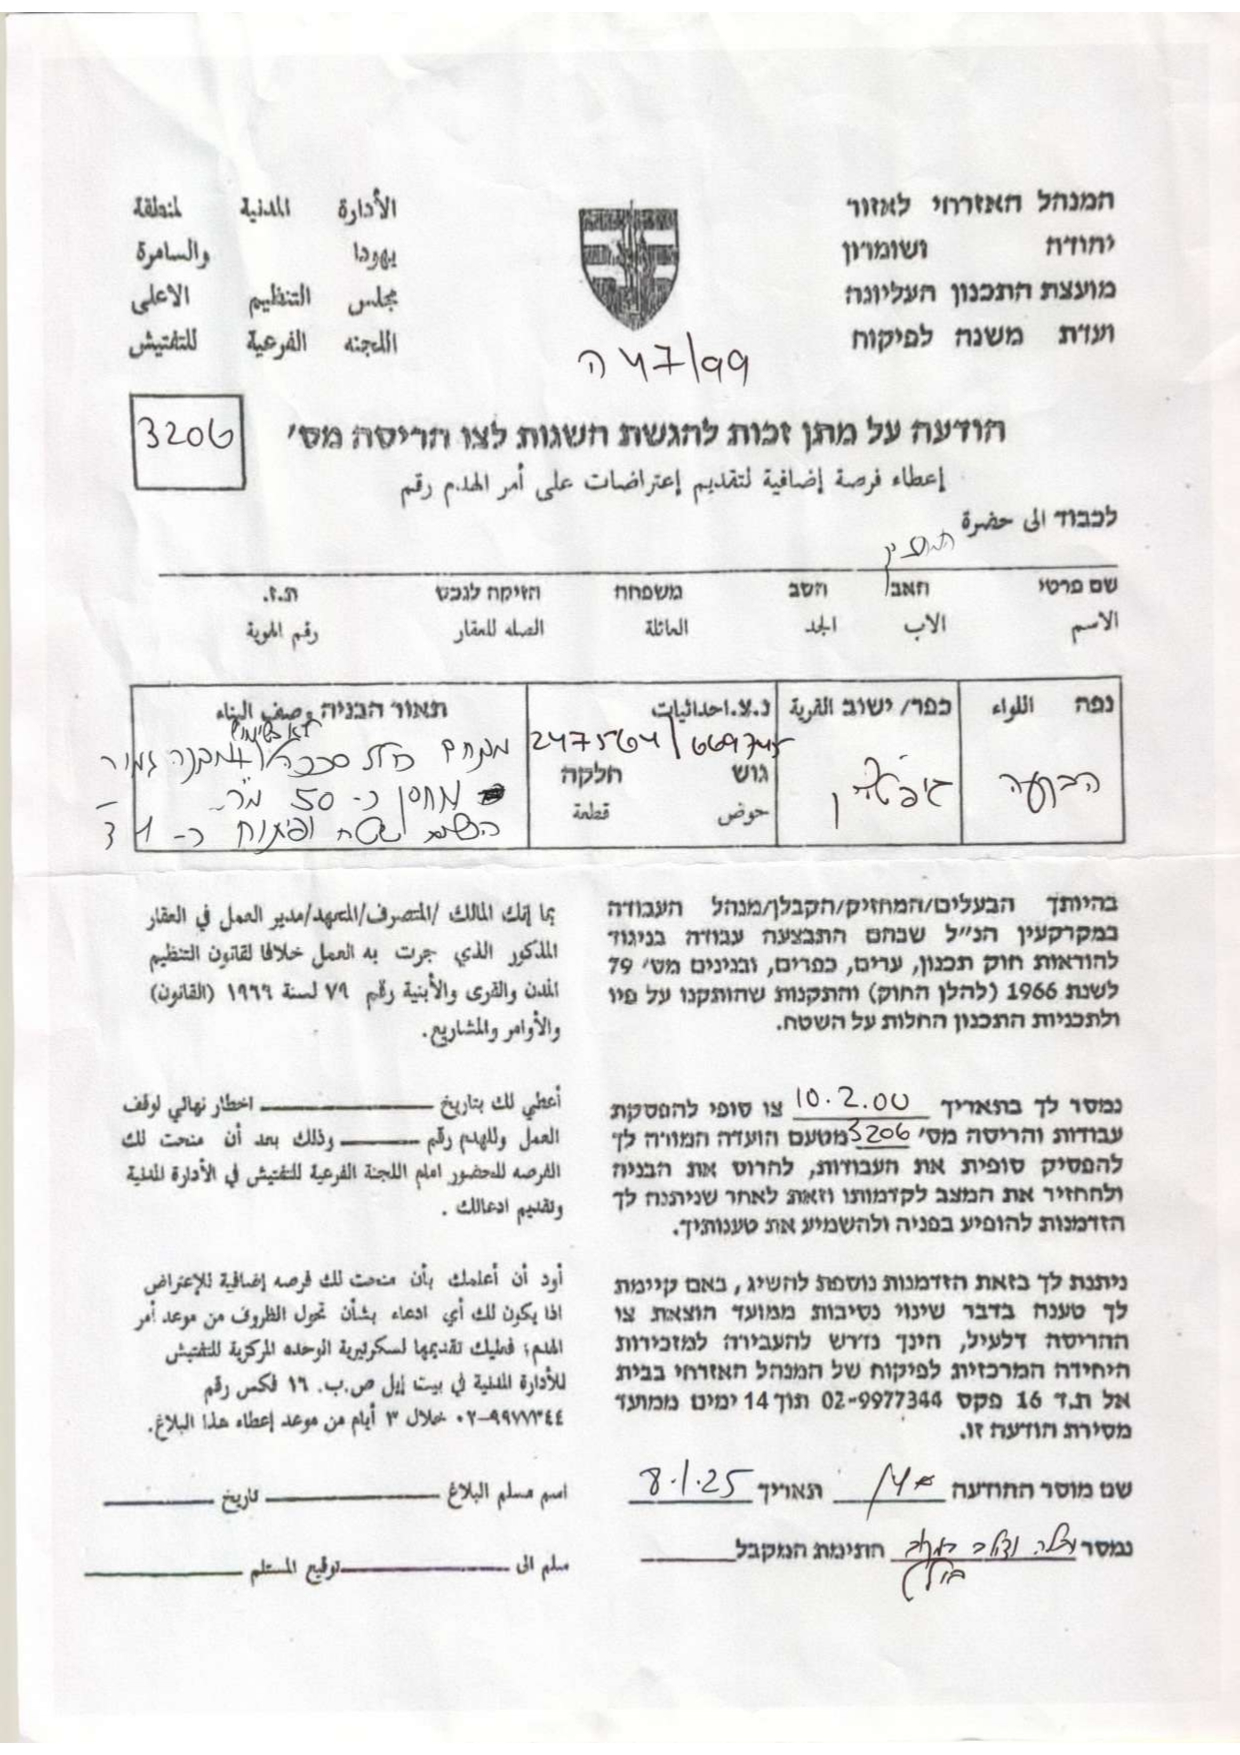 המנהל האזרחי לאזור
יהודה ושומרון
מועצת התכנון העליונה
ועדת משנה לפיקוח
الأدارة المدنية لمنطقة
يهودا والسامرة
مجلس التنظيم الاعلى
اللجنه الفرعية للتفتيش
ה 47/99
הודעה על מתן זכות להגשת השגות לצו הריסה מס׳
3206
إعطاء فرصة إضافية لتقديم إعتراضات على أمر الهدم رقم
לכבוד الى حضرة
המחזיק
שם פרטי האב הסב משפחה הזיקה לנכס ת.ז.
الاسم الاب الجد العائلة الصله للعقار رقم الهوية
נפה اللواء
הבקעה
כפר/ ישוב القرية
ג'יפטליק
נ.צ. احداثيات
247564/669745
גוש חלקה
حوض قطعة
תאור הבניה وصف البناء
מתחם כולל סככה מבנה גמור
מחסן כ- 50 מ"ר
שטח ופיתוח כ- 1 ד'
בהיותך הבעלים/המחזיק/הקבלן/מנהל העבודה
במקרקעין הנ״ל שבהם התבצעה עבודה בניגוד
להוראות חוק תכנון, ערים, כפרים, ובנינים מס׳ 79
לשנת 1966 (להלן החוק) והתקנות שהותקנו על פיו
ולתכניות התכנון החלות על השטח.
بما إنك المالك /المتصرف/المتعهد/مدير العمل في العقار
المذكور الذي جرت به العمل خلافا لقانون التنظيم
المدن والقرى والأبنية رقم ٧٩ لسنة ١٩٦٦ (القانون)
والأوامر والمشاريع.
נמסר לך בתאריך 10.2.00 צו סופי להפסקת
עבודות והריסה מס׳ 3206 מטעם הועדה המורה לך
להפסיק סופית את העבודות, להרוס את הבניה
ולהחזיר את המצב לקדמותו וזאת לאחר שניתנה לך
הזדמנות להופיע בפניה ולהשמיע את טענותיך.
أعطي لك بتاريخ اخطار نهائي لوقف
العمل وللهدم رقم وذلك بعد أن منحت لك
الفرصه للحضور امام اللجنة الفرعية للتفتيش في الأدارة المدنية
وتقديم ادعائك .
ניתנת לך בזאת הזדמנות נוספת להשיג, באם קיימת
לך טענה בדבר שינוי נסיבות ממועד הוצאת צו
ההריסה דלעיל, הינך נדרש להעבירה למזכירות
היחידה המרכזית לפיקוח של המנהל האזרחי בבית
אל ת.ד 16 פקס 02-9977344 תוך 14 ימים ממועד
מסירת הודעה זו.
أود أن أعلمك بأن منحت لك فرصه إضافية للإعتراض
اذا يكون لك أي ادعاء بشأن تحول الظروف من موعد أمر
الهدم؛ فعليك تقديمها لسكرتيرية الوحده المركزية للتفتيش
للأدارة المدنية في بيت إيل ص.ب. ١٦ فكس رقم
٠٢-٩٩٧٧٣٤٤ خلال ٣ أيام من موعد إعطاء هذا البلاغ.
שם מוסר ההודעה תאריך 8.1.25
נמסר החתימת המקבל
اسم مسلم البلاغ تاريخ
سلم الى توقيع المستلم